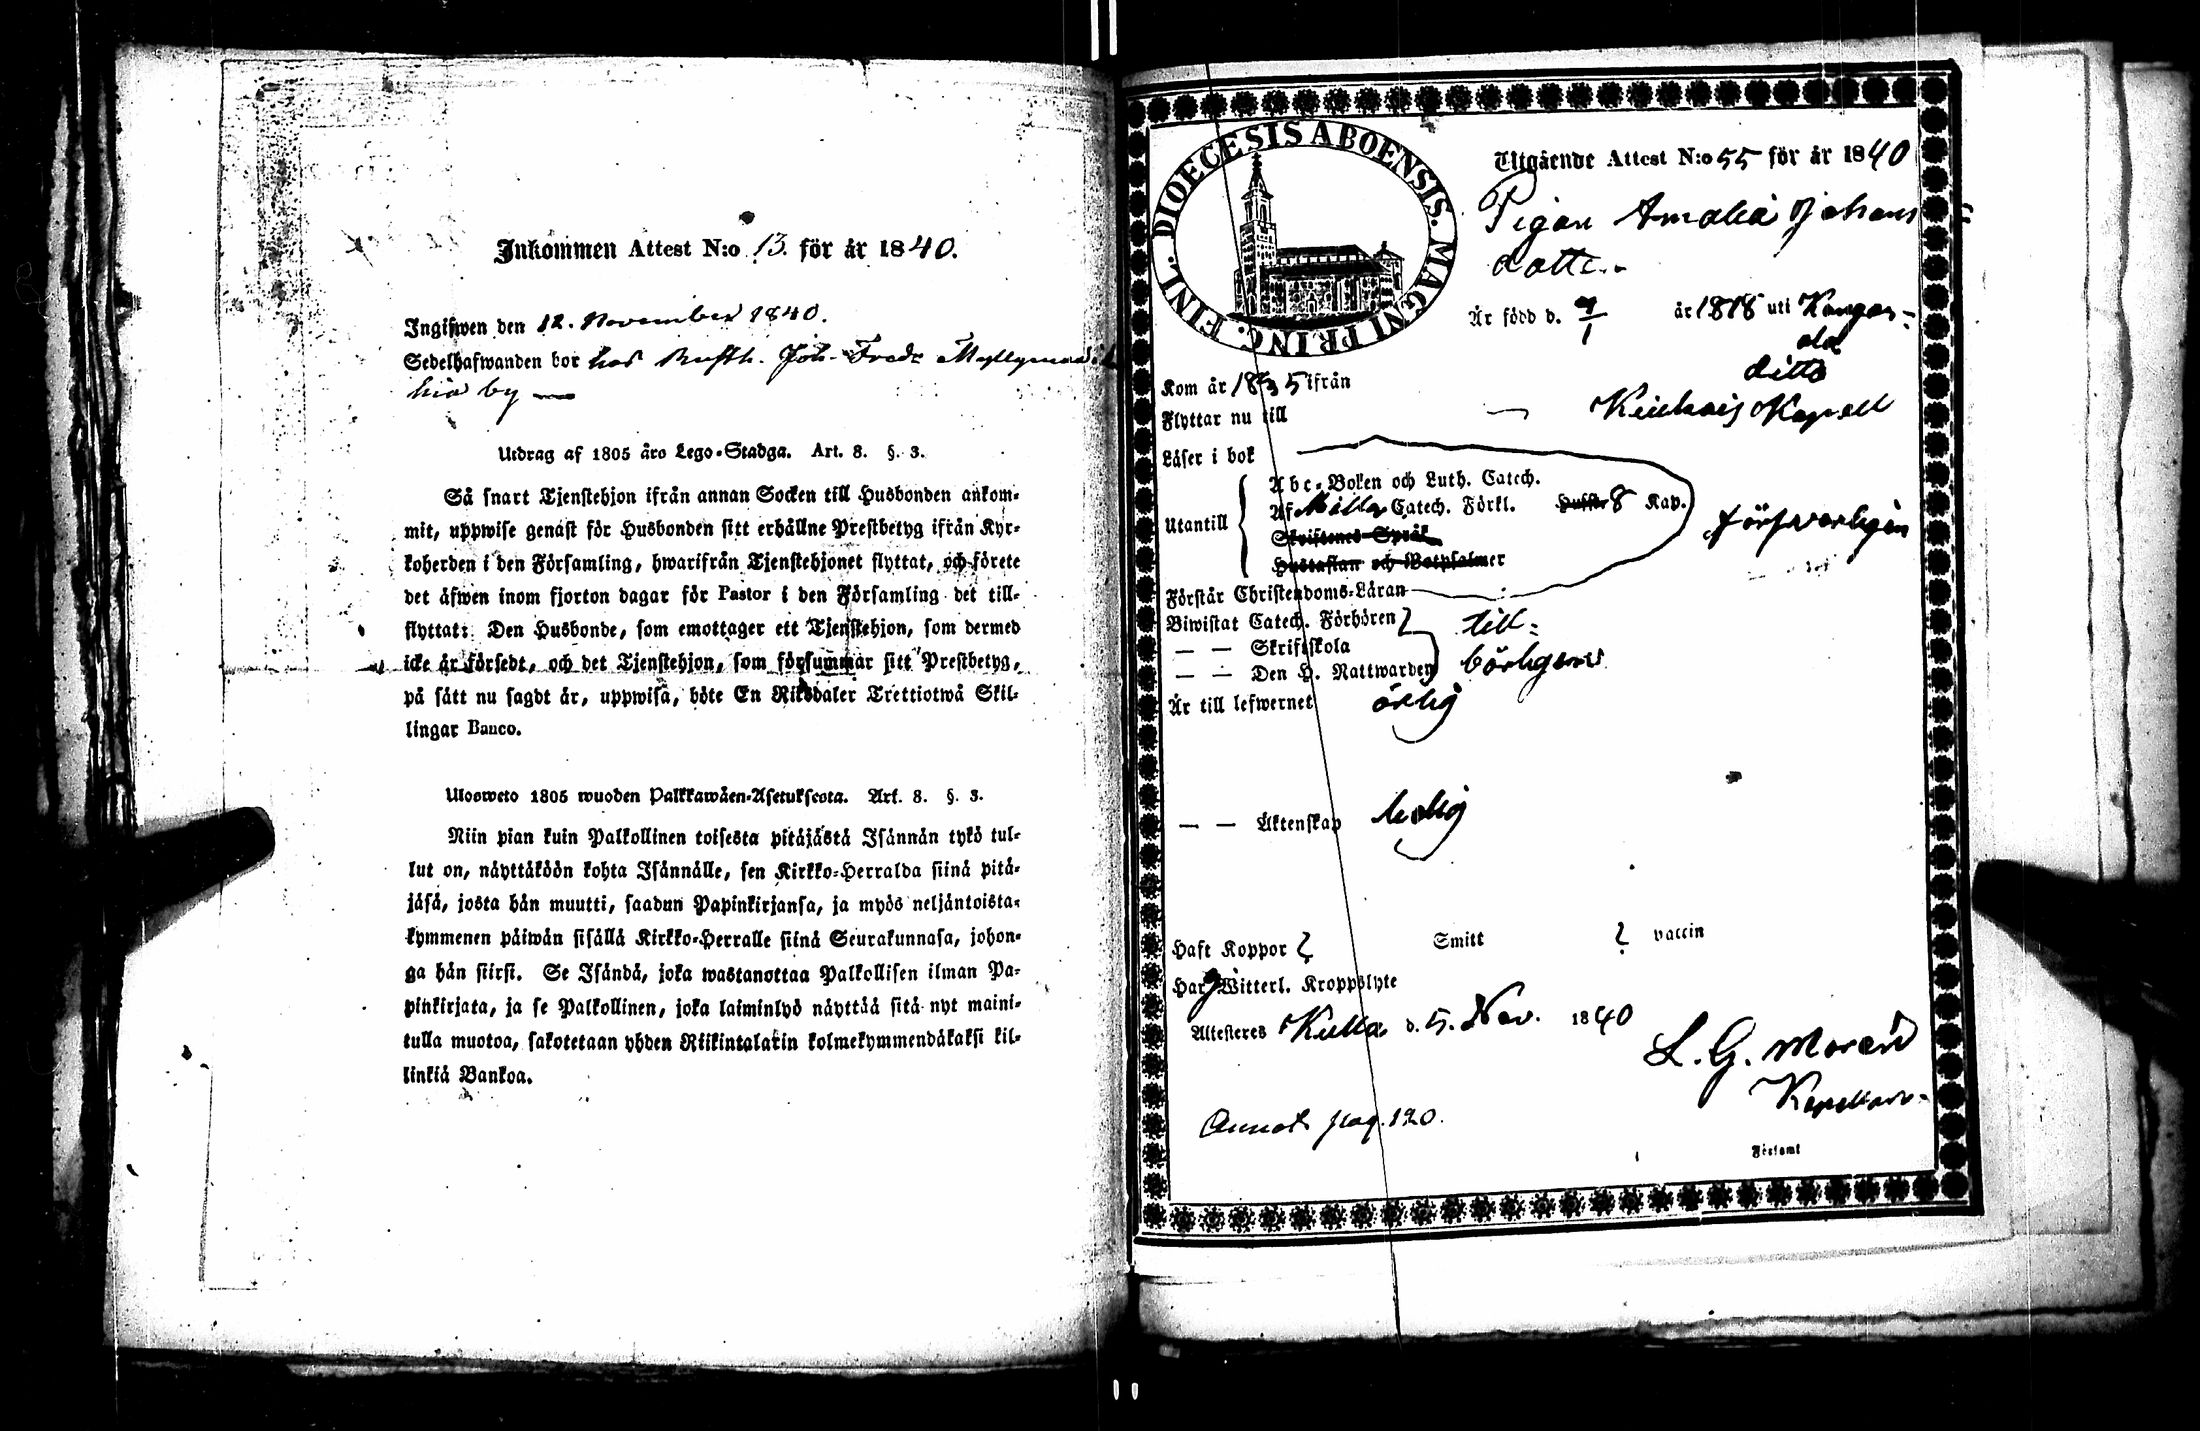 Inkommen Attest N:o 13. för år 1840.
Ingifwen den 12. November 1840.
Sedelhafwanden bor hos Rusth. Joh. Fredr
by —
Utdrag af 1805 åro Lego-Stadga. Art. 8. §. 3.
Så snart Tjenstehjon ifrån annan Socken till Husbonden ankom-
mit, uppwise genast för Husbonden sitt erhållne Prestbetyg ifrån Kyr-
koherden i den Församling, hwarifrån Tjenstehjonet flyttat, och förete
det äfwen inom fjorton dagar för Pastor i den Församling det till-
flyttat: Den Husbonde, som emottager ett Tjenstehjon, som dermed
icke är försedt, och det Tjenstehjon, som försummar sitt Prestbetyg,
på sätt nu sagdt är, uppwisa, böte En Riksdaler Trettiotwå Skil-
lingar Banco.
Ulosweto 1805 wuoden Palkkawäen-Asetuksesta. Art. 8. §. 3.
Niin pian kuin Palkollinen toisesta pitäjästä Isännän tykö tul-
lut on, näyttäköön kohta Isännälle, sen Kirkko-Herralda siinä pitä-
jäsä, josta hän muutti, saadun Papinkirjansa, ja myös neljäntoista-
kymmenen päiwän sisällä Kirkko-Herralle siinä Seurakunnasa, johon-
ga hän siirsi. Se Isändä, joka wastanottaa Palkollisen ilman Pa-
pinkirjata, ja se Palkollinen, joka laiminlyö näyttää sitä nyt maini-
tulla muotoa, sakotetaan yhden Riikintalarin kolmekymmendäkaksi kil-
linkiä Bankoa.
DIOECESIS ABOENSIS. MAGNI PRINC. FINL.
Utgående Attest N:o 55 för år 1840
Pigan Amalia Johans
dotter
Är född d. 7/1 år 1818 uti Kangas-
ala
Kom år 1835 ifrån ditto
Flyttar nu till — Kapell
Läser i bok
Utantill
Abc-Boken och Luth. Catech.
Af Catech. Förkl. 8 Kap. försvarligen
Skriftenes Språk
Hustaflan och Botpsalmer
Förstår Christendoms-Läran
Biwistat Catech. Förhören till-
— — Skriftskola
— — Den H. Nattwarden börligen
Är till lefwernet ärlig
— — Äktenskap ledig
Haft Koppor ? Smitt ? vaccin
Har Witterl. Kroppslyte
Attesteres Kulla d. 5. Nov. 1840
L. G. Morén
Kapellan.
Annot. pag. 120.
Förfamt